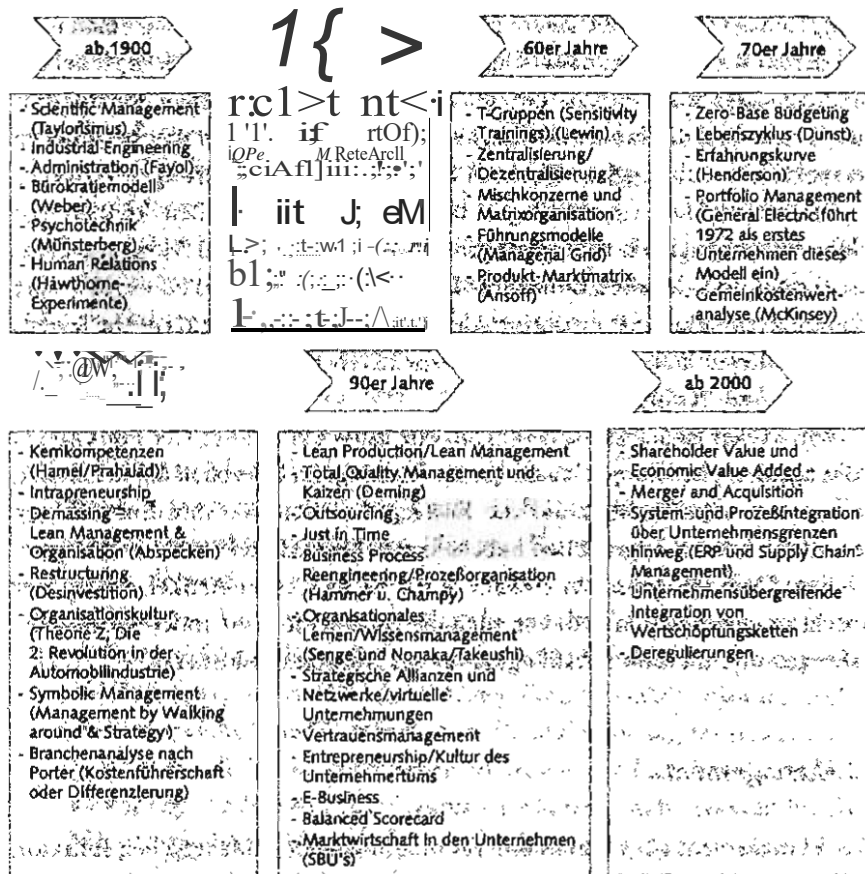 ab 1900
- Scientific Management
(Taylorismus)
- Industrial Engineering
- Administration (Fayol)
- Bürokratiemodell
(Weber)
- Psychotechnik
(Münsterberg)
- Human Relations
(Hawthorne-
Experimente)
60er Jahre
- T-Gruppen (Sensitivity
Trainings) (Lewin)
- Zentralisierung/
Dezentralisierung
- Mischkonzerne und
Matrixorganisation
- Führungsmodelle
(Managerial Grid)
- Produkt-Marktmatrix
(Ansoff)
70er Jahre
- Zero-Base Budgeting
- Lebenszyklus (Dunst)
- Erfahrungskurve
(Henderson)
- Portfolio Management
(General Electric führt
1972 als erstes
Unternehmen dieses
Modell ein)
- Gemeinkostenwert-
analyse (McKinsey)
- Kernkompetenzen
(Hamel/Prahalad)
- Intrapreneurship
- Demassing
Lean Management &
Organisation (Abspecken)
- Restructuring
(Desinvestition)
- Organisationskultur
(Theorie Z, Die
2. Revolution in der
Automobilindustrie)
- Symbolic Management
(Management by Walking
around & Strategy)
- Branchenanalyse nach
Porter (Kostenführerschaft
oder Differenzierung)
90er Jahre
- Lean Production/Lean Management
- Total Quality Management und
Kaizen (Deming)
- Outsourcing
- Just in Time
- Business Process
Reengineering/Prozeßorganisation
(Hammer u. Champy)
- Organisationales
Lernen/Wissensmanagement
(Senge und Nonaka/Takeushi)
- Strategische Allianzen und
Netzwerke/virtuelle
Unternehmungen
- Vertrauensmanagement
- Entrepreneurship/Kultur des
Unternehmertums
- E-Business
- Balanced Scorecard
- Marktwirtschaft in den Unternehmen
(SBU's)
ab 2000
- Shareholder Value und
Economic Value Added
- Merger and Acquisition
- System- und Prozeßintegration
über Unternehmensgrenzen
hinweg (ERP und Supply Chain
Management)
- Unternehmensübergreifende
Integration von
Wertschöpfungsketten
- Deregulierungen